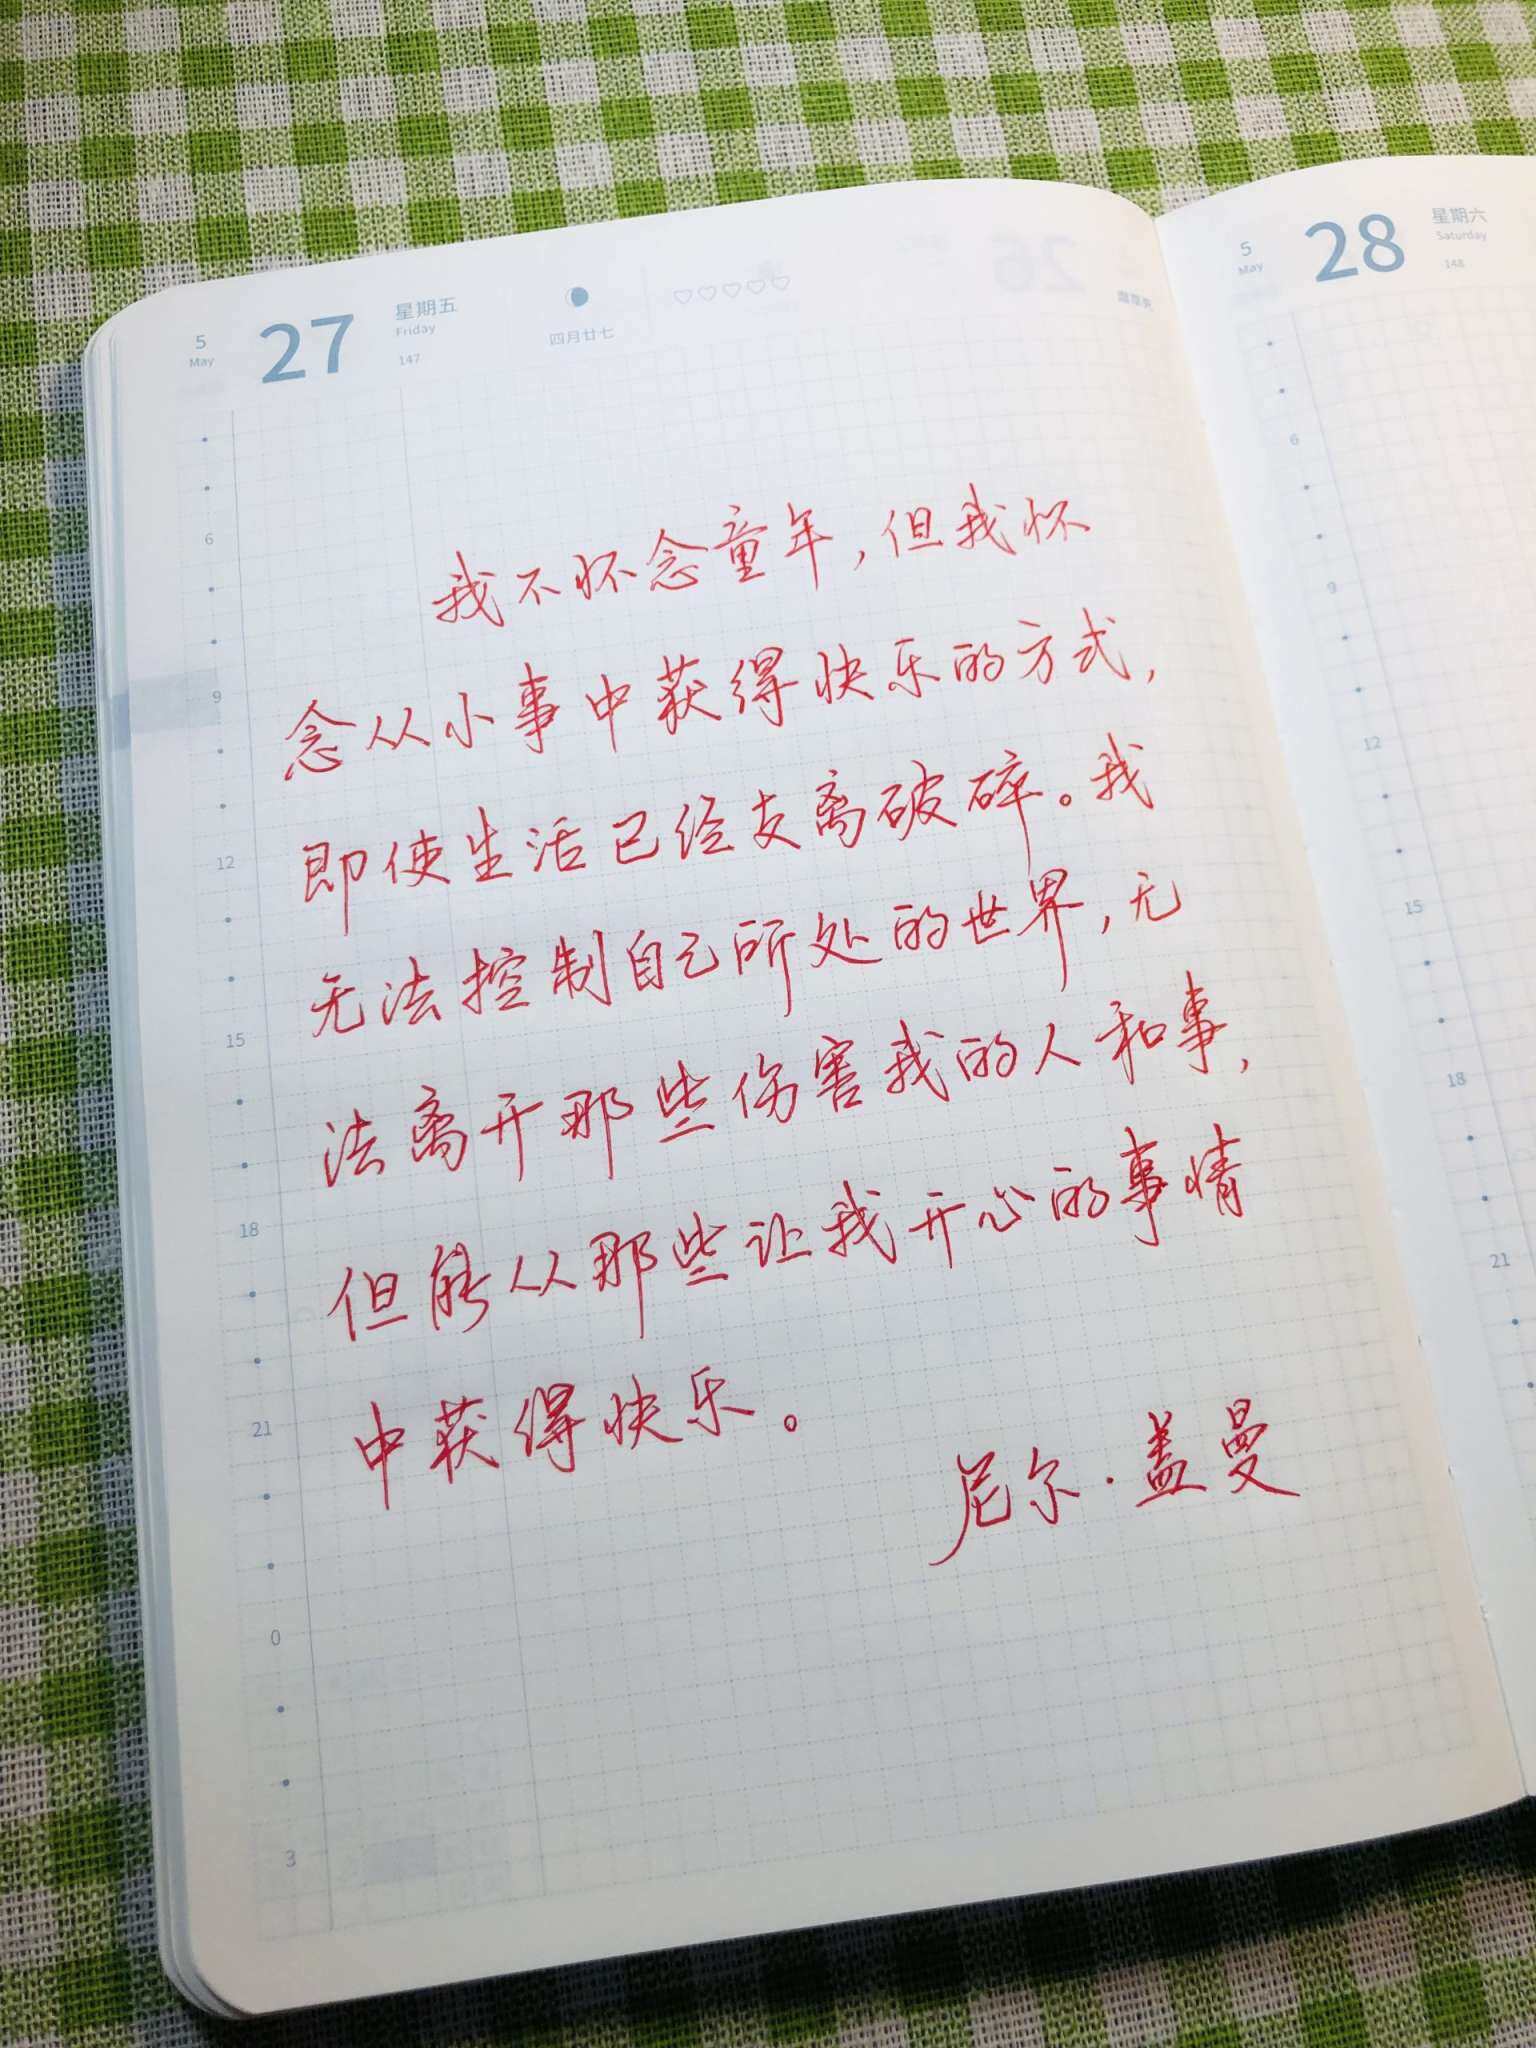 5
May
27
星期五
Friday
147
四月廿七
我不怀念童年，但我怀
念从小事中获得快乐的方式，
即使生活已经支离破碎。我
无法控制自己所处的世界，无
法离开那些伤害我的人和事，
但能从那些让我开心的事情
中获得快乐。
尼尔·盖曼
6
9
12
15
18
21
0
3
5
May
28
星期六
Saturday
148
6
9
12
15
18
21